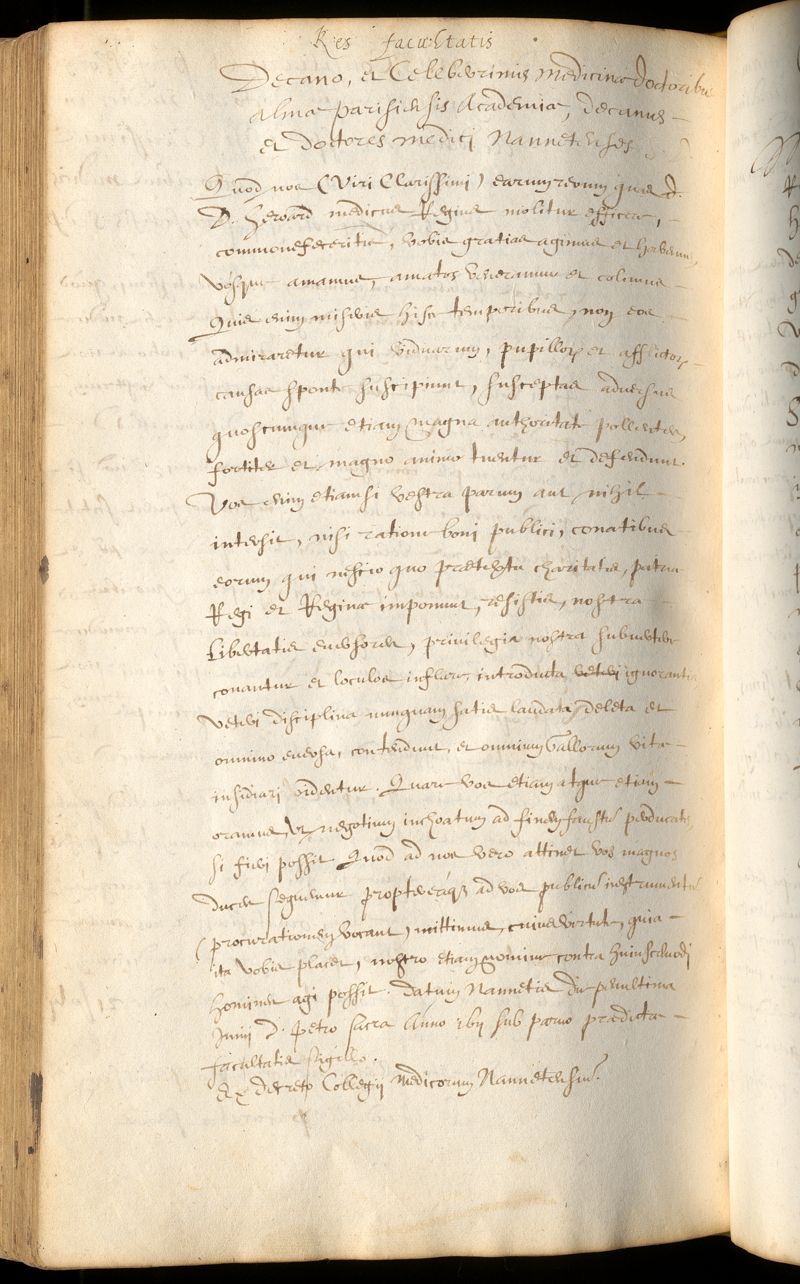 Res facultatis
Decano, et Celeberrimis Medicinæ Doctoribus
almæ parisiensis Academiæ, decanus
et doctores medici Nannetenses
Quod nos (Viri Clarissimi) earum rerum quas d.
D. Heroard medicus Reginæ molitur efficere,
commonefeceritis, vobis gratias agimus et habemus,
vosque amamus, amatos veneramur et colimus
Quis enim miseris hisce temporibus, non eos
admiraretur qui viduarum, pupillorum et afflictorum
causas sponte suscipiunt, susceptas adversus
quoscumque etiam magna authoritate pollentes,
fortiter et magno animo tuentur et defendunt.
Vos enim etiamsi vestra parum aut nihil
intersit, nisi ratione boni publici, conatibus
eorum qui nescio quo prætextu charitatis, patriæ
Regi et Reginæ imponunt, resistis, nostra
Libertatis eversores, privilegia nostra subvertere
conantur et loculos inflare, introducta veteri ignorantia
veteri disciplina nunquam satis laudata, deleta et
omnino eversa, contendunt, et omnium Gallorum vitæ
insidiari videntur. Quare vos etiam atque etiam
oramus, ut negotium inchoatum ad finem faustum perducatis,
si fieri possit Quod ad nos vero attinet vos magnos
duces sequemur proptereaque ad vos publicum instrumentum
(procurationem vocant) mittimus, cuius virtute, quia
ita vobis placet, nostro etiam nomine contra huiuscemodi
homines agi possit. datum Nannetis die penultima
Junii D. Petro sacra Anno sub parvo predictæ
facultatis sigillo.
Ex decreto Collegij Medicorum Nannetensium.